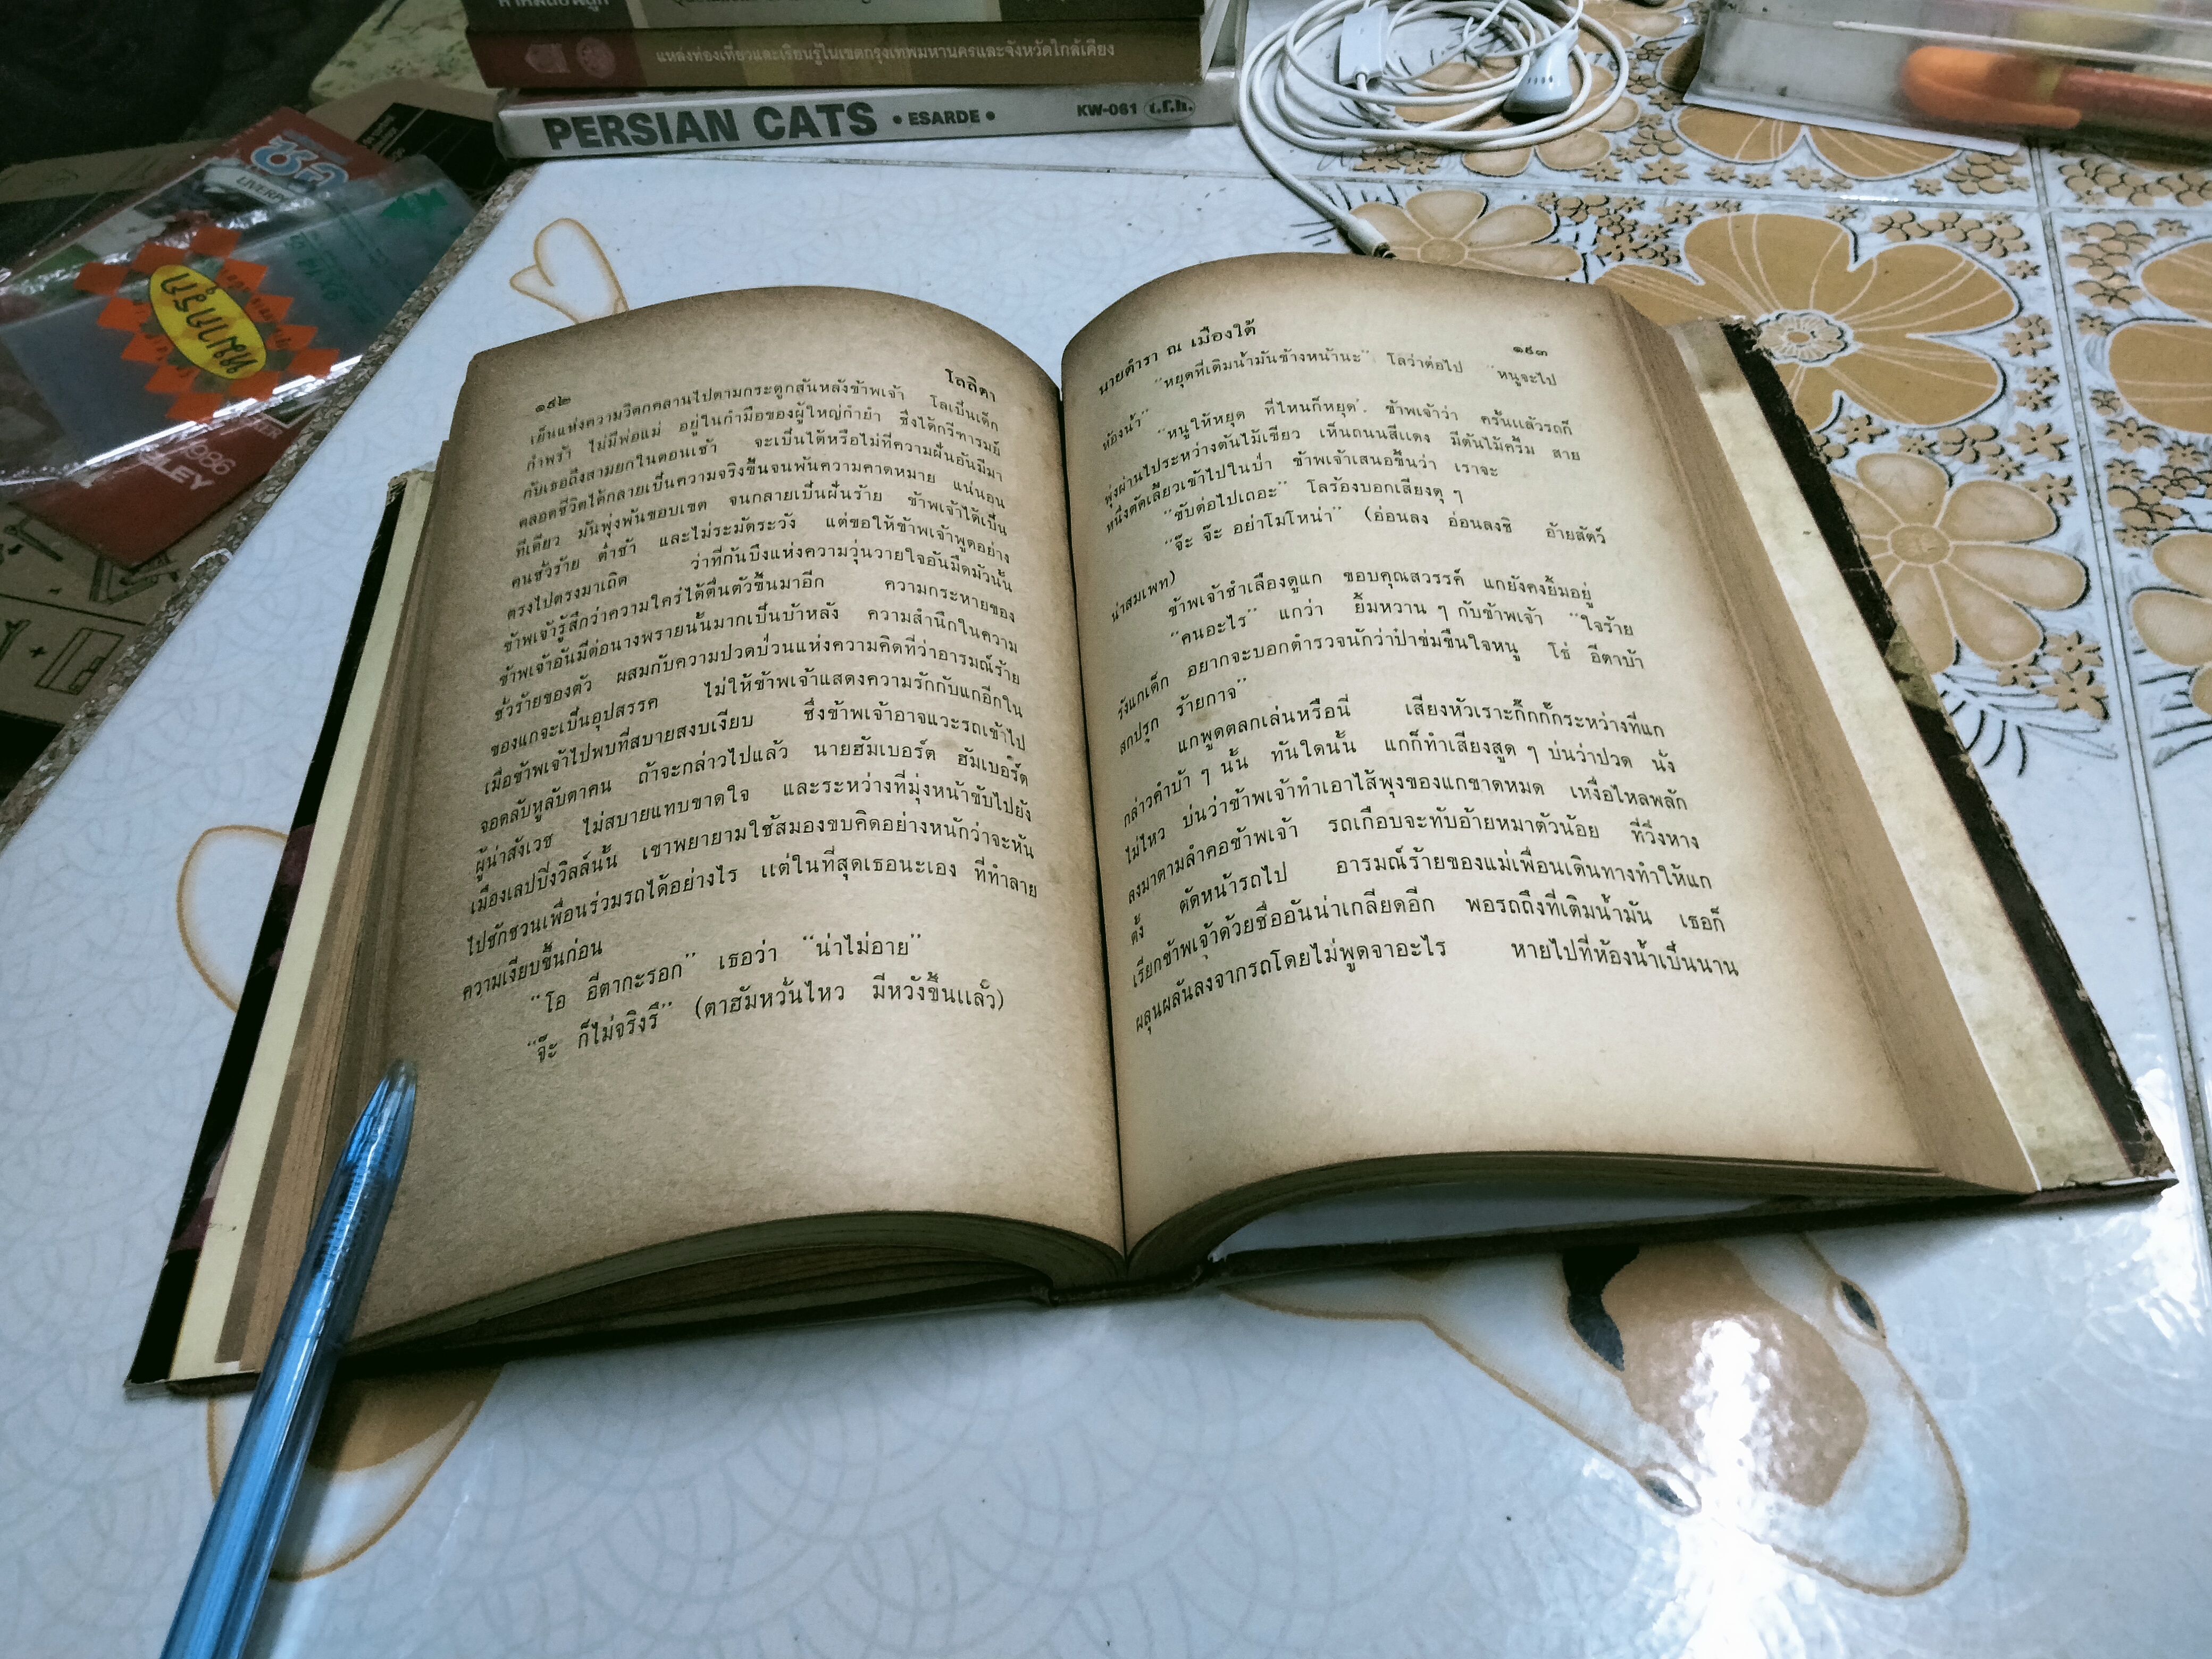 แหล่งท่องเที่ยวและเรียนรู้ในเขตกรุงเทพมหานครและจังหวัดใกล้เคียง
PERSIAN CATS • ESARDE • KW-061 t.f.h.
LIVERP
แว่นแฟน
1986
๑๙๒ โลลิตา
เย็นแห่งความวิตกคลานไปตามกระดูกสันหลังข้าพเจ้า โลเป็นเด็ก
กำพร้า ไม่มีพ่อแม่ อยู่ในกำมือของผู้ใหญ่กำยำ ซึ่งได้กรีฑารมย์
กับเธอถึงสามยกในตอนเช้า จะเป็นได้หรือไม่ที่ความฝันอันมีมา
ตลอดชีวิตได้กลายเป็นความจริงขึ้นจนพ้นความคาดหมาย แน่นอน
ทีเดียว มันพุ่งพ้นขอบเขต จนกลายเป็นฝันร้าย ข้าพเจ้าได้เป็น
คนชั่วร้าย ต่ำช้า และไม่ระมัดระวัง แต่ขอให้ข้าพเจ้าพูดอย่าง
ตรงไปตรงมาเถิด ว่าที่ก้นบึงแห่งความวุ่นวายใจอันมืดมัวนั้น
ข้าพเจ้ารู้สึกว่าความใคร่ได้ตื่นตัวขึ้นมาอีก ความกระหายของ
ข้าพเจ้าอันมีต่อนางพรายนั้นมากเป็นบ้าหลัง ความสำนึกในความ
ชั่วร้ายของตัว ผสมกับความปวดป่วนแห่งความคิดที่ว่าอารมณ์ร้าย
ของแกจะเป็นอุปสรรค ไม่ให้ข้าพเจ้าแสดงความรักกับแกอีกใน
เมื่อข้าพเจ้าไปพบที่สบายสงบเงียบ ซึ่งข้าพเจ้าอาจแวะรถเข้าไป
จอดลับหูลับตาคน ถ้าจะกล่าวไปแล้ว นายฮัมเบอร์ต ฮัมเบอร์ต
ผู้น่าสังเวช ไม่สบายแทบขาดใจ และระหว่างที่มุ่งหน้าขับไปยัง
เมืองเลปปิ้งวิลล์นั้น เขาพยายามใช้สมองขบคิดอย่างหนักว่าจะหัน
ไปชักชวนเพื่อนร่วมรถได้อย่างไร แต่ในที่สุดเธอนะเอง ที่ทำลาย
ความเงียบขึ้นก่อน
“โอ อีตากะรอก” เธอว่า “น่าไม่อาย”
“จ๊ะ ก็ไม่จริงรึ” (ตาฮัมหวั่นไหว มีหวังขึ้นแล้ว)
นายตำรา ณ เมืองใต้ ๑๙๓
“หยุดที่เติมน้ำมันข้างหน้านะ” โลว่าต่อไป “หนูจะไป
ห้องน้ำ”
“หนูให้หยุด ที่ไหนก็หยุด”. ข้าพเจ้าว่า ครั้นแล้วรถก็
พุ่งผ่านไประหว่างต้นไม้เขียว เห็นถนนสีแดง มีต้นไม้ครึ้ม สาย
หนึ่งตัดเลี้ยวเข้าไปในป่า ข้าพเจ้าเสนอขึ้นว่า เราจะ
“ขับต่อไปเถอะ” โลร้องบอกเสียงดุ ๆ
“จ๊ะ จ๊ะ อย่าโมโหน่า” (อ่อนลง อ่อนลงซิ อ้ายสัตว์
น่าสมเพท)
ข้าพเจ้าชำเลืองดูแก ขอบคุณสวรรค์ แกยังคงยิ้มอยู่
“คนอะไร” แกว่า ยิ้มหวาน ๆ กับข้าพเจ้า “ใจร้าย
รังแกเด็ก อยากจะบอกตำรวจนักว่าป๋าข่มขืนใจหนู โธ่ อีตาบ้า
สกปรุก ร้ายกาจ”
แกพูดตลกเล่นหรือนี่ เสียงหัวเราะกั๊กกั๊กระหว่างที่แก
กล่าวคำบ้า ๆ นั้น ทันใดนั้น แกก็ทำเสียงสูด ๆ บ่นว่าปวด นั่ง
ไม่ไหว บ่นว่าข้าพเจ้าทำเอาไส้พุงของแกขาดหมด เหงื่อไหลพลัก
ลงมาตามลำคอข้าพเจ้า รถเกือบจะทับอ้ายหมาตัวน้อย ที่วิ่งหาง
ตั้ง ตัดหน้ารถไป อารมณ์ร้ายของแม่เพื่อนเดินทางทำให้แก
เรียกข้าพเจ้าด้วยชื่ออันน่าเกลียดอีก พอรถถึงที่เติมน้ำมัน เธอก็
ผลุนผลันลงจากรถโดยไม่พูดจาอะไร หายไปที่ห้องน้ำเป็นนาน